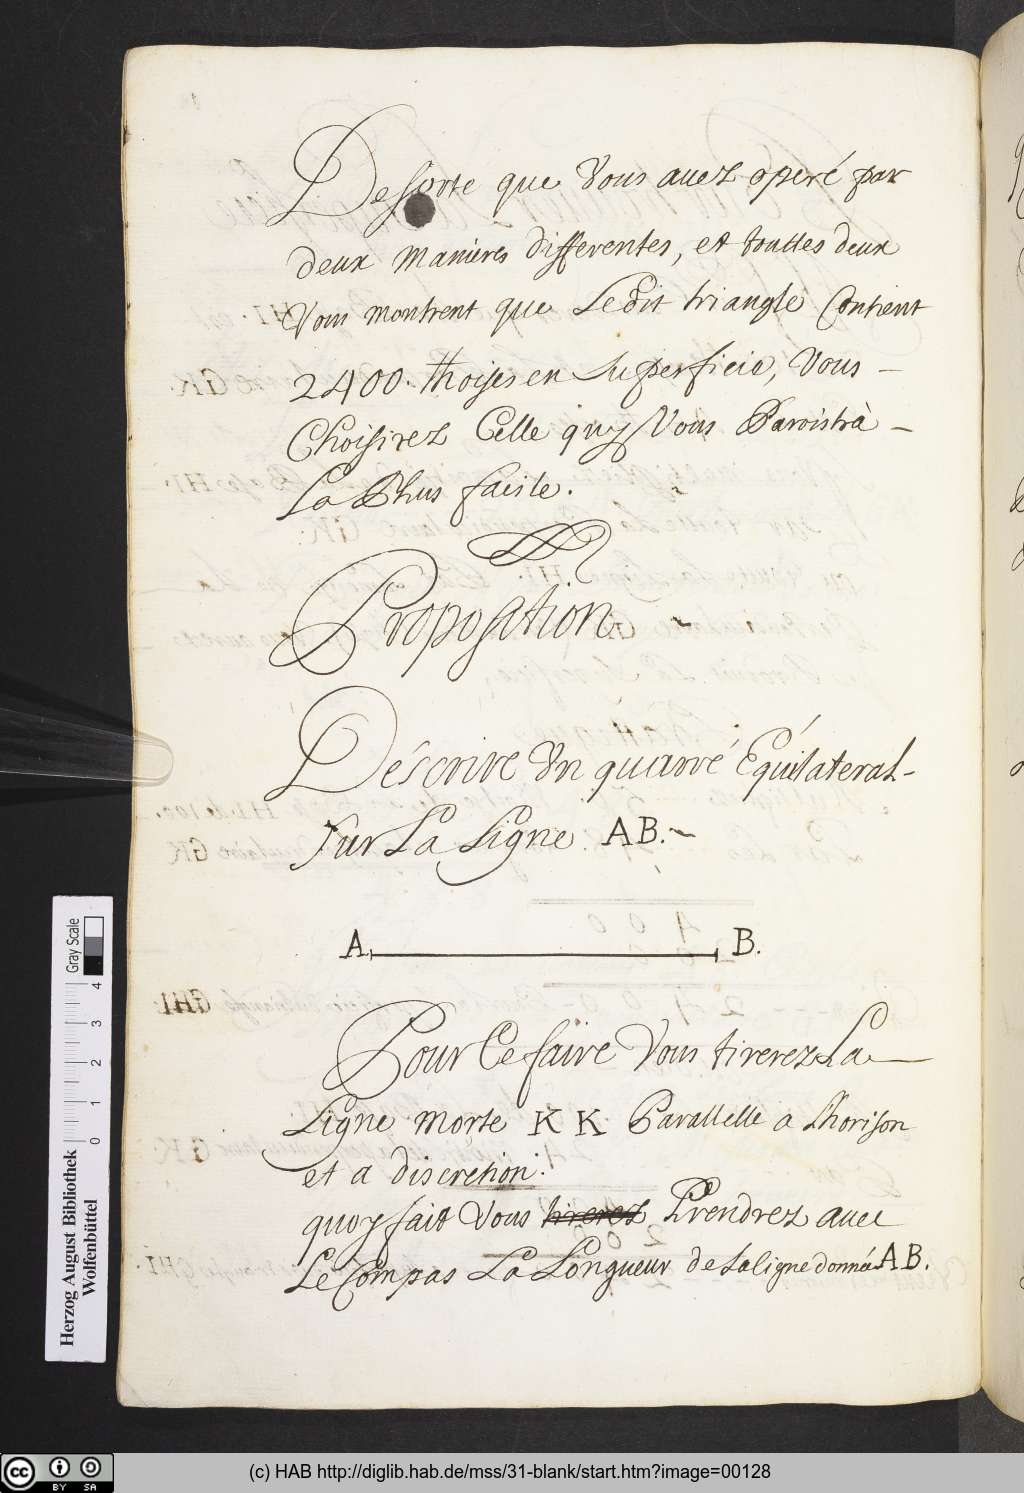 De sorte que Vous avez operé par
deux Manieres differentes, et touttes deux
Vous montrent que Ledit triangle Contient
2400. thoises en Superficie, Vous –
Choisirez Celle quy Vous Paroistrà –
La Plus facile.
Proposition
Déscrire Vn quarré Équilateral-
Sur La Ligne AB.~
A B.
Pour Ce faire Vous tirerez La
Ligne morte KK Parallelle a Lhorison
et a discretion.
quoy fait Vous tirerez Prendrez avec
Le Compas La Longueur de La ligne donnée AB.
Gray Scale
0 1 2 3 4
Herzog August Bibliothek
Wolfenbüttel
cc BY SA
(c) HAB http://diglib.hab.de/mss/31-blank/start.htm?image=00128